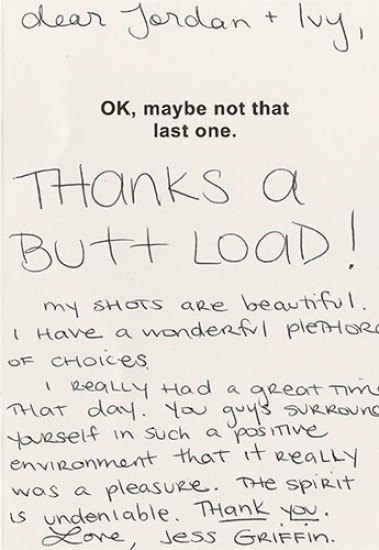 dear Jordan + Ivy,
OK, maybe not that
last one.
THanks a
Butt LOAD!
my SHOTS are beautiful.
I Have a wonderful pletHor
OF CHOICES.
I REALLY Had a great Tim
THAT day. You guys SURROUN
yourself in such a positive
environment that it REALLY
was a pleasure. THE spirit
is undeniable. THank you.
Love, Jess Griffin.